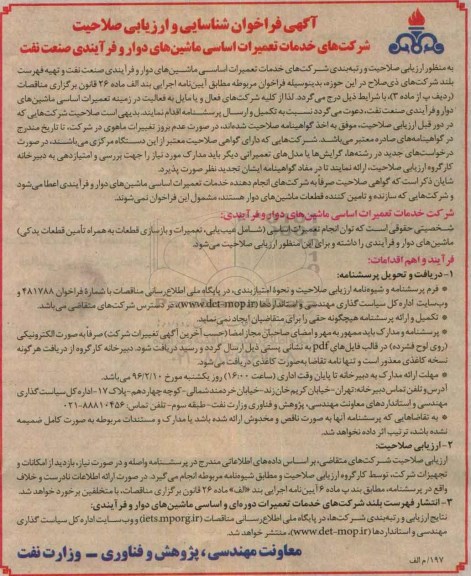 آگهی فراخوان شناسایی و ارزیابی صلاحیت
شرکت‌های خدمات تعمیرات اساسی ماشین‌های دوار و فرآیندی صنعت نفت
به منظور ارزیابی صلاحیت و رتبه‌بندی شرکت‌های خدمات تعمیرات اساسی ماشین‌های دوار و فرآیندی صنعت نفت و تهیه فهرست
بلند شرکت‌های ذی‌صلاح در این حوزه، بدینوسیله فراخوان مربوطه مطابق آیین‌نامه اجرایی بند الف ماده ۲۶ قانون برگزاری مناقصات
(ردیف پ از ماده ۳)، با شرایط ذیل درج می‌گردد. لذا از کلیه شرکت‌های فعال و یا مایل به فعالیت در زمینه تعمیرات اساسی ماشین‌های
دوار و فرآیندی صنعت نفت، دعوت می‌گردد نسبت به تکمیل و ارسال پرسشنامه اقدام نمایند. بدیهی است صلاحیت شرکت‌هایی که
در دور قبل ارزیابی صلاحیت، موفق به اخذ گواهینامه صلاحیت شده‌اند، در صورت عدم بروز تغییرات ماهوی در شرکت، تا تاریخ مندرج
در گواهینامه‌های صادره معتبر می‌باشد. شرکت‌هایی که دارای گواهی صلاحیت معتبر از این دستگاه مرکزی می‌باشند، در صورت
درخواست‌های جدید در رشته‌ها، گرایش‌ها یا مدل‌های تعمیراتی دیگر باید مدارک مورد نیاز را جهت بررسی و امتیازدهی به دبیرخانه
کارگروه ارزیابی صلاحیت، ارائه نمایند تا در مفاد گواهینامه ایشان تجدید نظر صورت پذیرد.
شایان ذکر است که گواهی صلاحیت صرفاً به شرکت‌های انجام دهنده خدمات تعمیرات اساسی ماشین‌های دوار و فرآیندی اعطا می‌شود
و شرکت‌هایی که سازنده و تامین کننده قطعات ماشین‌های دوار هستند، مشمول این فراخوان نمی‌شوند.
شرکت خدمات تعمیرات اساسی ماشین‌های دوار و فرآیندی:
شخصیتی حقوقی است که توان انجام تعمیرات اساسی (شامل عیب‌یابی، تعمیرات و بازسازی قطعات به همراه تأمین قطعات یدکی)
ماشین‌های دوار و فرآیندی را داشته و برای این منظور ارزیابی صلاحیت می‌شود.
فرآیند و اهم اقدامات:
۱- دریافت و تحویل پرسشنامه:
* فرم پرسشنامه و شیوه‌نامه ارزیابی صلاحیت و نحوه امتیازبندی، در پایگاه ملی اطلاع‌رسانی مناقصات با شماره فراخوان ۴۸۱۷۸۸ و
وب‌سایت اداره کل سیاست گذاری مهندسی و استانداردها (www.det-mop.ir)، در دسترس شرکت‌های متقاضی می‌باشد.
* تکمیل و ارائه پرسشنامه هیچگونه حقی را برای متقاضیان ایجاد نمی‌نماید.
* پرسشنامه و مدارک باید ممهور به مهر و امضای صاحبان مجاز امضا (حسب آخرین آگهی تغییرات شرکت) صرفاً به صورت الکترونیکی
(روی لوح فشرده) در قالب فایل‌های pdf به نشانی پستی ذیل ارسال گردد و رسید دریافت شود. دبیرخانه کارگروه از دریافت هرگونه
نسخه کاغذی معذور است و تنها نامه تقاضا به صورت کاغذی دریافت می‌شود.
* مهلت ارائه مدارک به دبیرخانه تا پایان وقت اداری (ساعت ۱۶:۰۰) روز یکشنبه مورخ ۹۶/۲/۱۰ می‌باشد.
آدرس و تلفن تماس دبیرخانه: تهران- خیابان کریم‌خان زند- خیابان خردمند شمالی- کوچه چهاردهم- پلاک ۱۷- اداره کل سیاست گذاری
مهندسی و استانداردهای معاونت مهندسی، پژوهش و فناوری وزارت نفت- طبقه سوم- تلفن تماس: ۸۸۸۱۰۴۵۶-۰۲۱
* به تقاضاهایی که پرسشنامه آنها به صورت ناقص و مخدوش ارائه شده باشد یا مدارک و مستندات مربوطه به صورت کامل ضمیمه
نشده باشد، ترتیب اثر داده نخواهد شد.
۲- ارزیابی صلاحیت:
ارزیابی صلاحیت شرکت‌های متقاضی، بر اساس داده‌های اطلاعاتی مندرج در پرسشنامه واصله و در صورت نیاز، بازدید از امکانات و
تجهیزات شرکت، توسط کارگروه ارزیابی صلاحیت و مطابق شیوه‌نامه مربوطه انجام می‌گیرد. در صورت ارائه اطلاعات نادرست و خلاف
واقع در پرسشنامه، مطابق بند پ ماده ۱۶ آیین‌نامه اجرایی بند «الف» ماده ۲۶ قانون برگزاری مناقصات، با متخلفین برخورد خواهد شد.
۳- انتشار فهرست بلند شرکت‌های خدمات تعمیرات دوره‌ای و اساسی ماشین‌های دوار و فرآیندی:
نتایج ارزیابی و رتبه‌بندی شرکت‌ها، در پایگاه ملی اطلاع‌رسانی مناقصات (iets.mporg.ir) و وب‌سایت اداره کل سیاست گذاری
مهندسی و استانداردها (www.det-mop.ir)، منتشر خواهد شد.
معاونت مهندسی، پژوهش و فناوری – وزارت نفت
۱۹۷/م الف